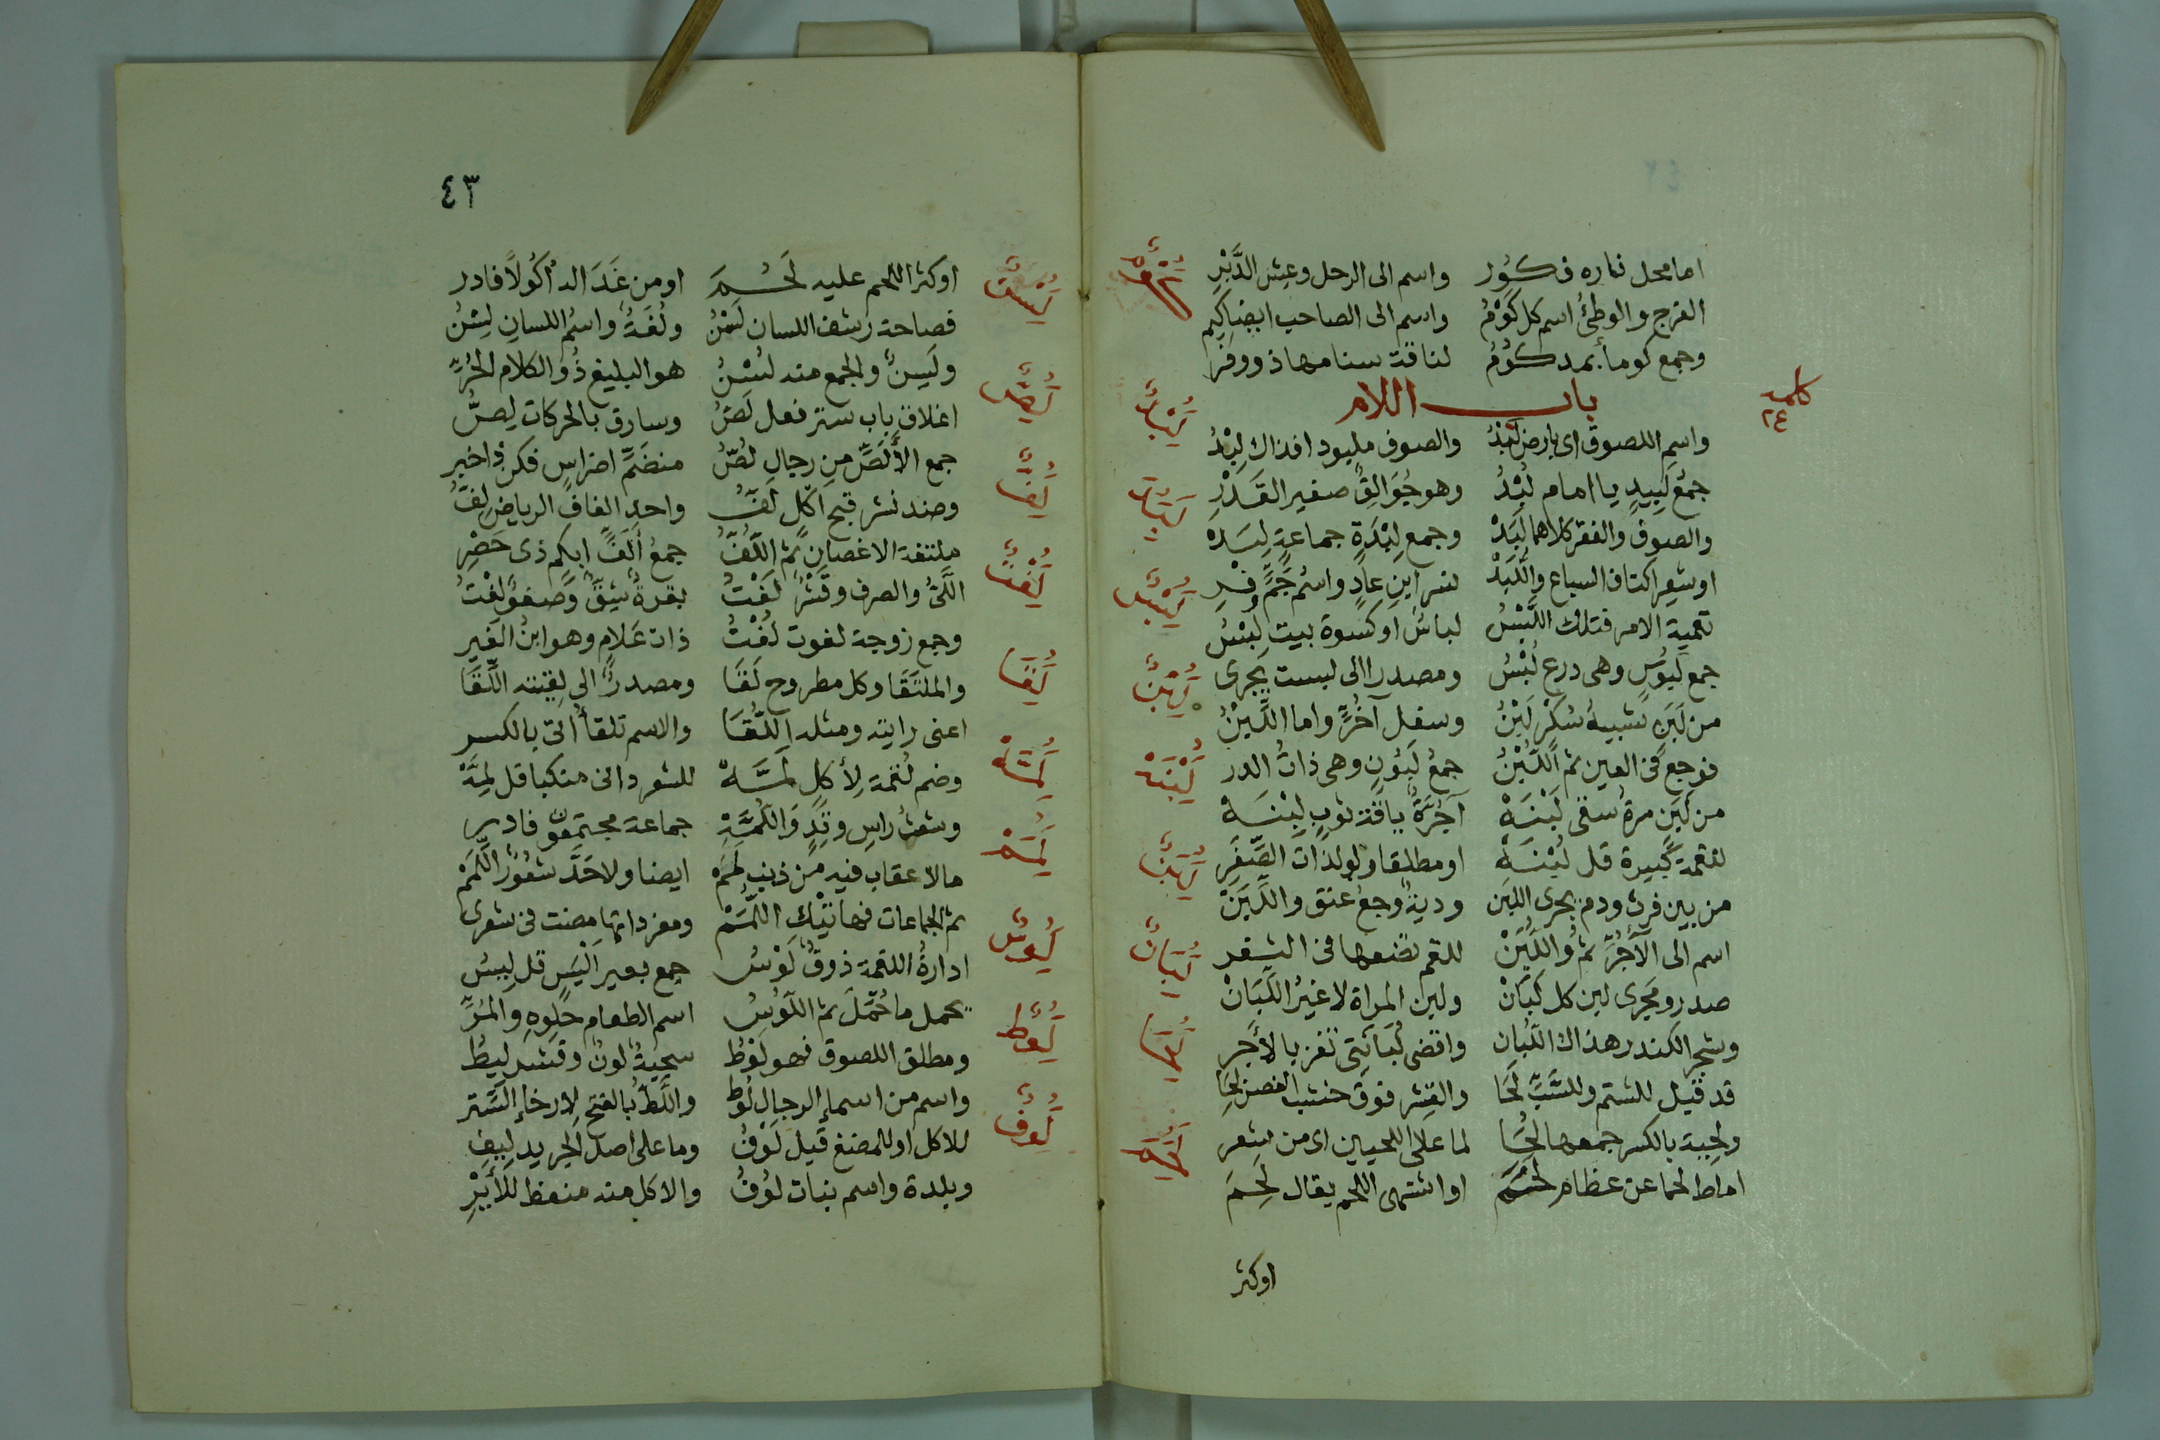 اما محل ناره فكُور واسم الى الرحل وعش الدَّبْرِ
الفرج والوطئ اسم كل كَوْمُ واسم الى الصاحب ايضا كِيم
وجمع كوما بمد كُوْمُ لناقة سنامها ذو وفر
باب اللام
كلمه
٢٤
واسم اللصوق اى بارض لَبْدُ والصوف ملبود افذاك لِبْدُ
جمعُ لَبِيدٍ يا امام لُبْدُ وهو جُوَالِقُ صغير القَدْرِ
والصوف والفقر كلاهما لَبَدْ وجمع لِبْدَةٍ جماعةٍ لِبَدْ
او شعر اكتاف السباع واللُّبَدْ لنسر ابن عادٍ واسمُ جَمٍّ وفرِ
تعمية الامر فتلك اللَّبْسُ لباسُ او كسوة بيت لِبْسُ
جمع لَبُوسٍ وهى درع لُبْسُ ومصدرا الى لبست يجرى
من لَبَنٍ شبيهُ سُكْرٍ لَبْنُ وسفل آخُرٍّ واما اللِّبْنُ
فوجع فى العين ثم اللُّبْنُ جمعُ لَبُونٍ وهى ذاتُ الدر
من لَبَنٍ مرة سقى لَبْنَهْ آجُرَّةُ ياقة ثوبٍ لِبْنَهْ
لقمة كبيرة قل لُبْنَهْ او مطلقا ولولذات الصِّغَرِ
من بين فرث ودم يجرى اللبن وديةُ وجع عنق واللِّبَنْ
اسم الى الآجُرِّ ثم واللُّبَنْ للقم تضعها فى الثغر
صدر ومَجرى لبن كل لَبَانْ ولبن المراة لا غيرُ اللِّبَانْ
وشجر الكندر هذاك اللُّبان واقضى لُبَانَتِى تفز بالأجر
قد قيل للشتم وللسَّبِّ لَحَا والقشر فوق خشب الغصن لِحَا
ولحية بالكسر جمعها لُحَا لما على اللحيين اى من شعر
اماط لحما عن عظام لَحَمَ او اشتهى اللحم يقال لَحِمَ
اوكثر
٤٣
اوكثر اللحم عليه لَحُمَ او من غَدَ الد أكُولاً فادر
فصاحة رشف اللسان لَسْنُ ولُغَةُ واسمُ اللسانِ لِسْنُ
ولَسِنٌ والجمع منه لُسْنُ هو البليغ ذُو الكلام الحُرِّ
اغلاق باب ستر فعل لَصُّ وسارق بالحركات لِصُّ
جمع الأَلَصِّ من رجال لُصُّ منضَمَّ اضراسٍ فكن ذا خبر
وضد نشر قبح اكل لَفُّ واحد الفاف الرياض لِفُّ
ملتفة الاغصان ثم اللُّفُّ جمعُ أَلَفٍّ ابكم ذى حَصْرِ
اللَّىُّ والصرف وقَشْرُ لَفْتُ بقرةُ شِقٌّ وصغوٌ لِفْتُ
وجمع زوجة لفوت لُفْتُ ذات غلام وهو ابنُ الغير
والملتَقَا وكل مطروح لَقَا ومصدرٌ الى لِقِيته اللِّقَا
اعنى رايته ومثله اللُّقَا والاسم تلقأ اتى بالكسر
وضم لُقمة لِأكل لَمَّهْ للشعر دانى منكبا قل لِمَّهْ
وشعثُ راسٍ وتَدٍ وَاللُّمَّةِ جماعة مجتمعون فادرِ
مالا عقاب فيه من ذنب لَمَمْ ايضا ولا حَدَّ شعُورُ اللِّمَمْ
ثم الجماعات فهاتيْكِ اللُّمَمْ ومفرداتها مضت فى شعرى
ادارةُ اللقمة ذوقٌ لَوْسُ جمع بعير اَلْيَسٍ قل لِيسُ
يحمل ما حُمِّلَ ثم اللُّوسُ اسم الطعام حُلوِهِ والمُرِّ
ومطلق اللصوق فهو لَوْطُ سجيةُ لونٌ وقشر لِيطُ
واسم من اسماءِ الرجال لُوطُ واللَّطُّ بالفتح لِارخاءِ السِّترِ
للاكل او للمضغ قيل لَوْفُ وما على اصل الجريد لِيفُ
وبلدة واسم بنات لُوفُ والاكل منه منعظ للأَيْرِ